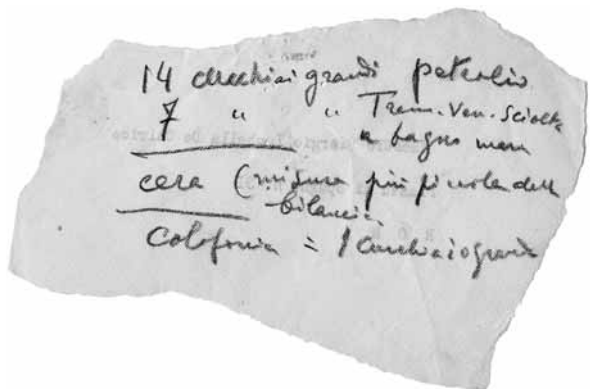 14 cucchiai grandi petrolio
7 " " Trem. Ven. Sciolta
a bagno maria
cera (misura più piccola della
bilancia
Colofonia = 1 Cucchiaio grande